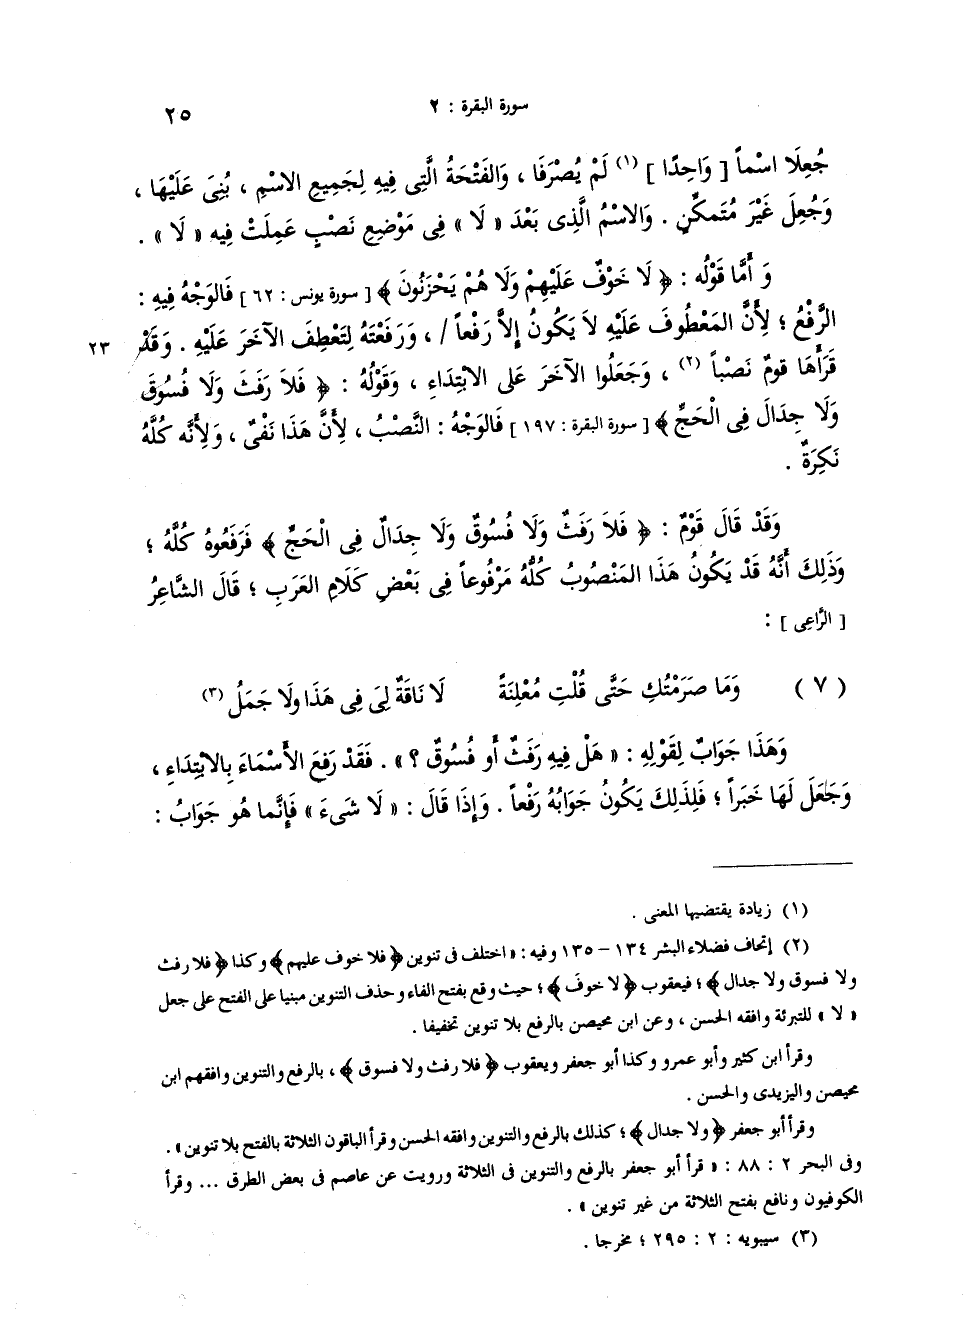 سورة البقرة : ٢
٢٥
جُعِلَا اسْماً [ وَاحِدًا ] (١) لَمْ يُصْرَفَا ، وَالفَتْحَةُ الَّتِى فِيهِ لِجَمِيعِ الاسْمِ ، بُنِىَ عَلَيْهَا ،
وَجُعِلَ غَيْرَ مُتَمكِّنٍ . وَالاسْمُ الَّذِى بَعْدَ « لَا » فِى مَوْضِعِ نَصْبٍ عَمِلَتْ فِيه « لَا » .
وَ أَمَّا قَوْلُه : ﴿ لَا خَوْفٌ عَلَيْهِمْ وَلَا هُمْ يَحْزَنُونَ ﴾ [ سورة يونس : ٦٢ ] فَالوَجْهُ فِيهِ :
الرَّفْعُ ؛ لِأَنَّ المَعْطُوفَ عَلَيْهِ لاَ يَكُونُ إِلاَّ رَفْعاً / ، وَرَفَعْتَهُ لِتَعْطِفَ الآخَرَ عَلَيْهِ . وَقَدْ ٢٣
قَرَأَهَا قومٌ نَصْباً (٢) ، وَجَعَلُوا الآخَرَ عَلى الابْتِدَاءِ ، وَقَوْلُهُ : ﴿ فَلاَ رَفَثَ وَلَا فُسُوقَ
وَلَا جِدَالَ فِى الْحَجِّ ﴾ [ سورة البقرة : ١٩٧ ] فَالوَجْهُ : النَّصْبُ ، لِأَنَّ هَذَا نَفْىٌ ، وَلِأَنَّه كُلَّهُ
نَكِرَةٌ .
وَقَدْ قَالَ قَوْمٌ : ﴿ فَلاَ رَفَثٌ وَلَا فُسُوقٌ وَلَا جِدَالٌ فِى الْحَجِّ ﴾ فَرَفَعُوهُ كُلَّهُ ؛
وَذَلِكَ أَنَّهُ قَدْ يَكُونُ هَذَا المَنْصُوبُ كُلُّهُ مَرْفُوعاً فِى بَعْضِ كَلَامِ العَرَبِ ؛ قَالَ الشَّاعِرُ
[ الرَّاعِى ] :
( ٧ ) وَمَا صَرَمْتُكِ حَتَّى قُلْتِ مُعْلِنَةً لَا نَاقَةٌ لِىَ فِى هَذَا ولَا جَمَلُ (٣)
وَهَذَا جَوَابٌ لِقَوْلِهِ : « هَلْ فِيهِ رَفَثٌ أَو فُسُوقٌ ؟ » . فَقَدْ رَفَعَ الأَسْمَاءَ بِالابْتِدَاءِ ،
وَجَعَلَ لَهَا خَبَراً ؛ فَلِذَلِكَ يَكُونُ جَوَابُهُ رَفْعاً . وَإِذَا قَالَ : « لَا شَىءَ » فَإِنَّما هُو جَوَابُ :
(١) زيادة يقتضيها المعنى .
(٢) إتحاف فضلاء البشر ١٣٤ – ١٣٥ وفيه : « اختلف فى تنوين ﴿ فلا خوف عليهم ﴾ وكذا ﴿ فلا رفث
ولا فسوق ولا جدال ﴾ ؛ فيعقوب ﴿ لا خوفَ ﴾ ؛ حيث وقع بفتح الفاء وحذف التنوين مبنيا على الفتح على جعل
« لا » للتبرئة وافقه الحسن ، وعن ابن محيصن بالرفع بلا تنوين تخفيفا .
وقرأ ابن كثير وأبو عمرو وكذا أبو جعفر ويعقوب ﴿ فلا رفث ولا فسوق ﴾ ، بالرفع والتنوين وافقهم ابن
محيصن واليزيدى والحسن .
وقرأ أبو جعفر ﴿ ولا جدال ﴾ ؛ كذلك بالرفع والتنوين وافقه الحسن وقرأ الباقون الثلاثة بالفتح بلا تنوين » .
وفى البحر ٢ : ٨٨ : « قرأ أبو جعفر بالرفع والتنوين فى الثلاثة ورويت عن عاصم فى بعض الطرق ... وقرأ
الكوفيون ونافع بفتح الثلاثة من غير تنوين » .
(٣) سيبويه : ٢ : ٢٩٥ ؛ مخرجا .